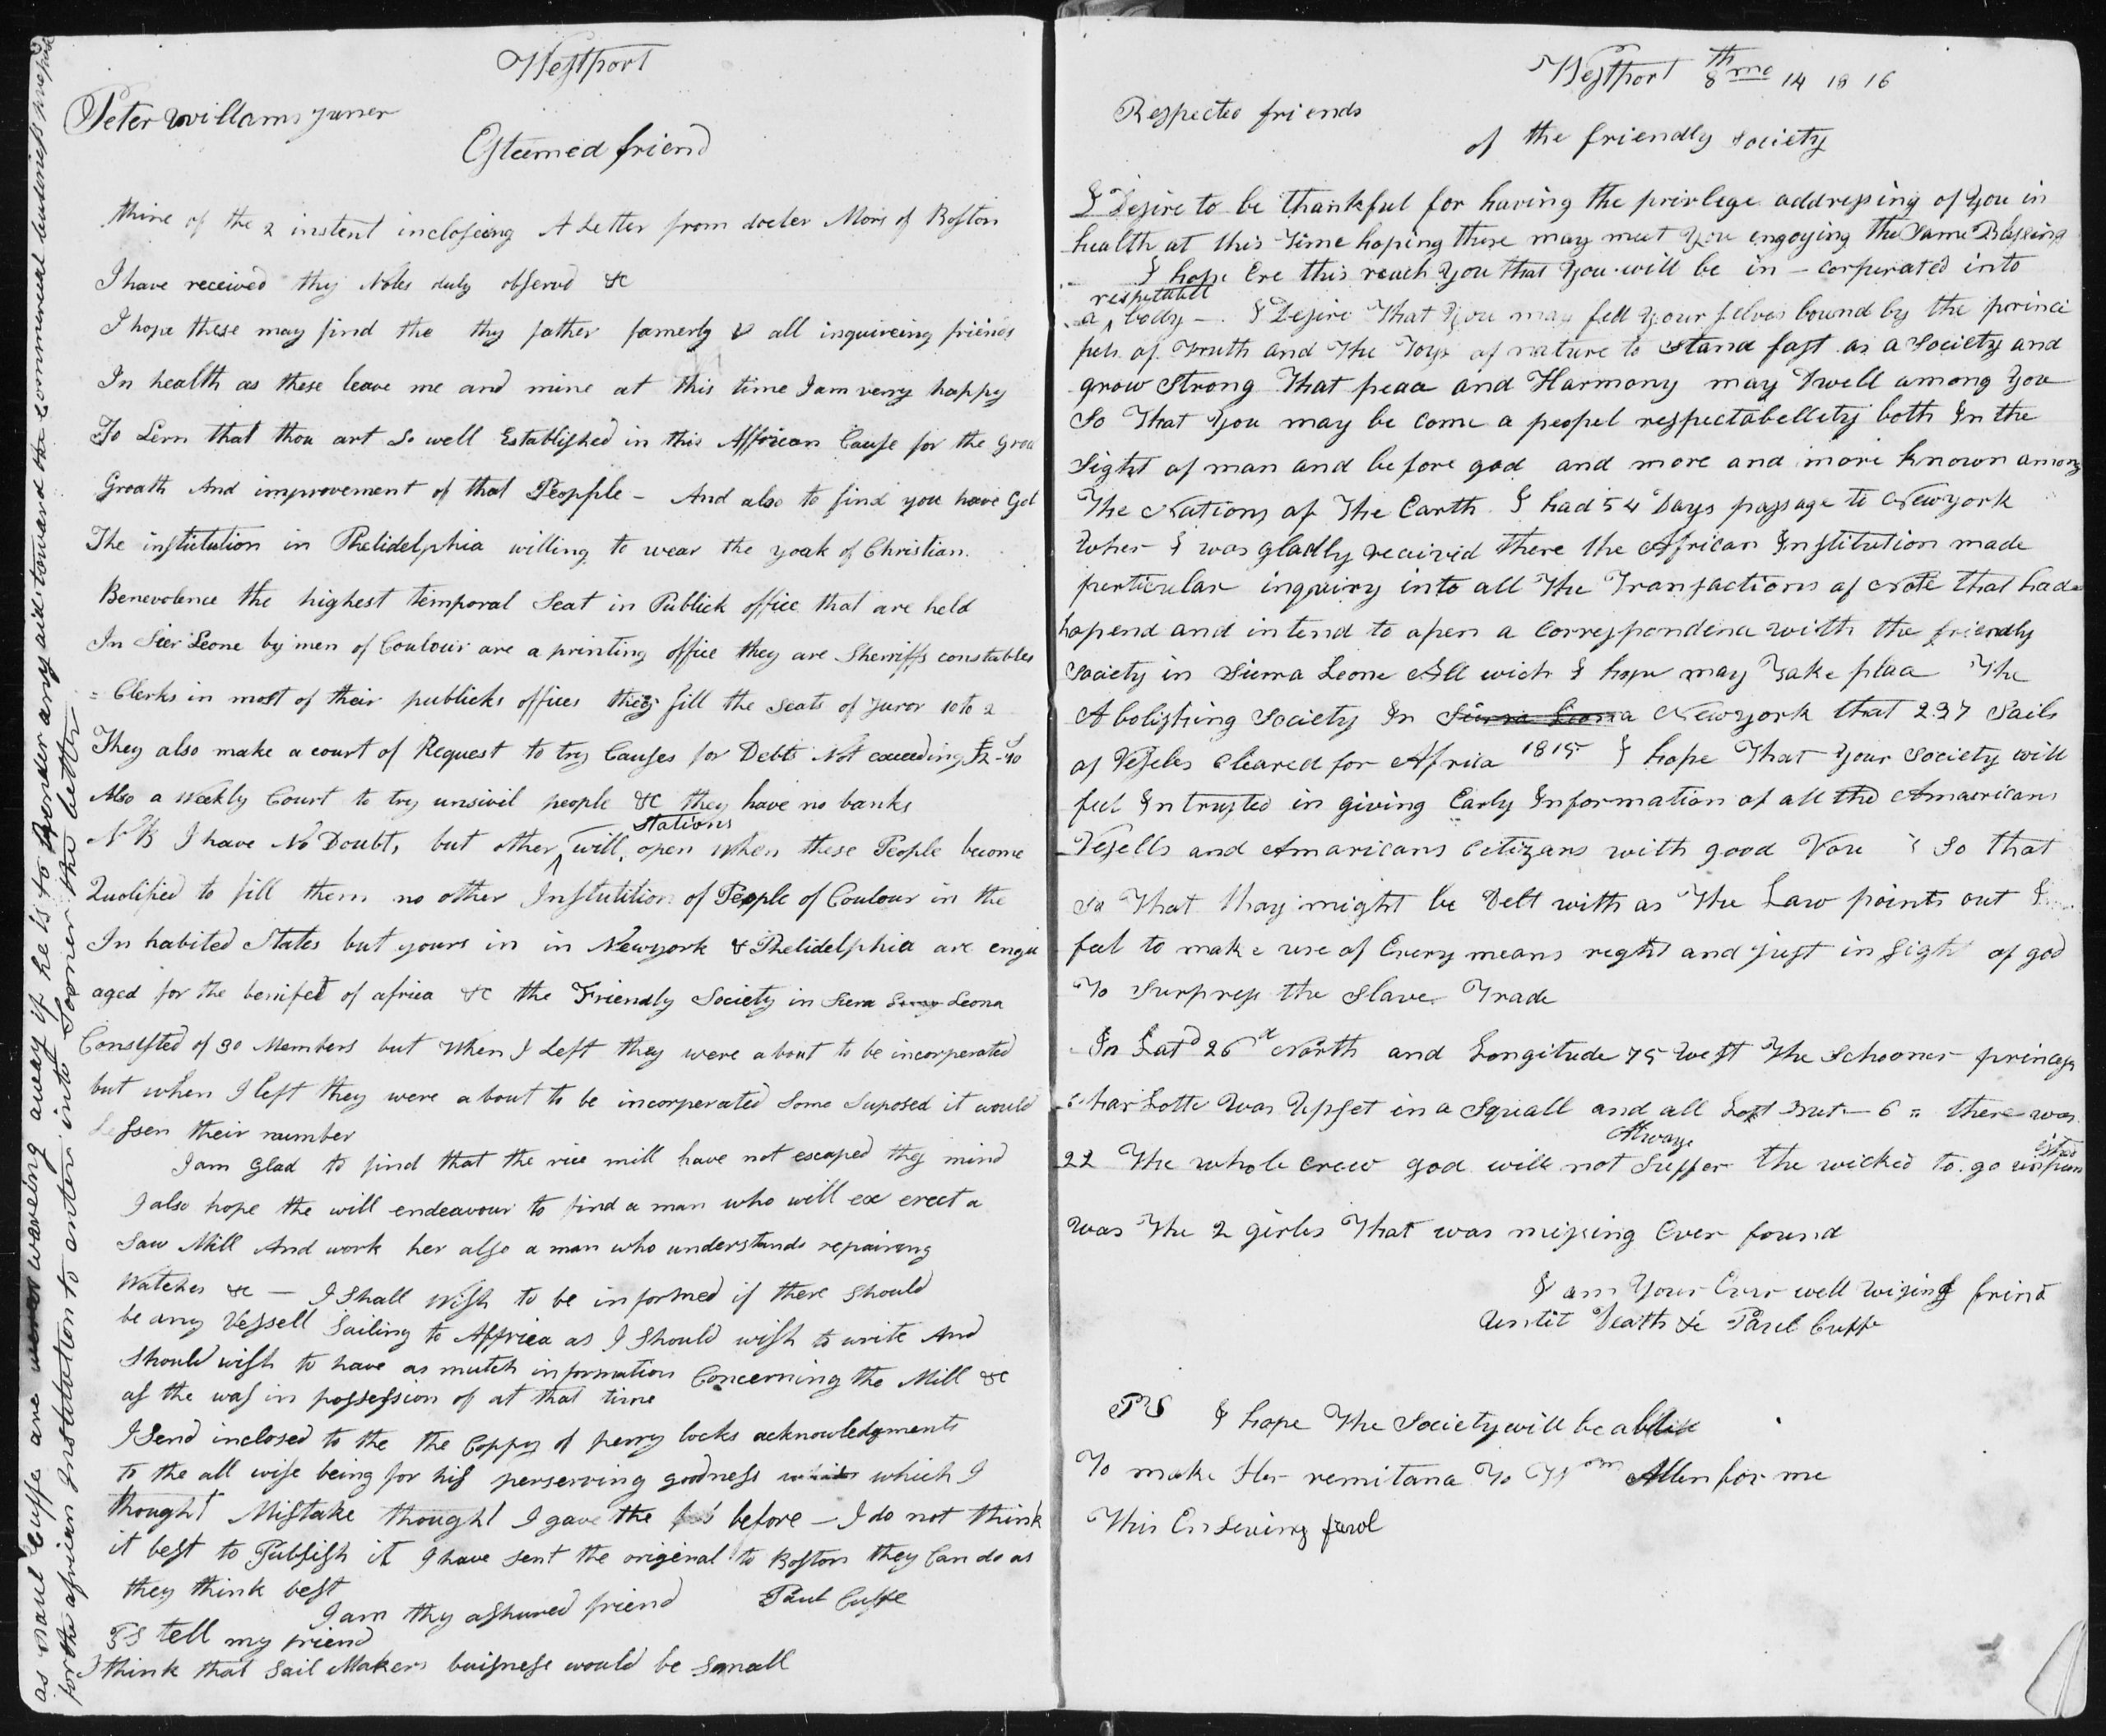 Westport
Peter Williams Juner
Esteemed friend
thine of the 2 instent incloseing A Letter from docter Mors of Boston
I have received thy Notes duly observd &c
I hope these may find the thy father famerly & all inquireing friends
In health as these leave me and mine at this time I am very happy
To Lern that thou art So well Established in this Affrican Cause for the Grou
Groath And improvement of that People - And also to find you have Got
The institution in Phelidelphia willing to wear the yoak of Christian
Benevolence the highest temporal Seat in Publick office that are held
In Sier Leone by men of Coulour are a printing office they are Sherriffs constables
= Clerks in most of their publicks offices they fill the seats of Juror 10 to 2
They also make a court of Request to try Causes for Debts Not exceeding £2-10
Also a Weekly Court to try unsivil people &c they have no banks
stations
N B I have No Doubt, but other ^ will, open when these People become
Quolified to fill them no other Institution of People of Coulour in the
In habited States but yours in in Newyork & Phelidelphia are enga
aged for the benifet of africa &c the Friendly Society in Siera Leona
Consisted of 30 Members but When I Left they were about to be incorperated
but when I left they were about to be incorperated Some Suposed it would
Lessen their number
I am Glad to find that the rice mill have not escaped thy mind
I also hope the will endeavour to find a man who will ex erect a
Saw Mill And work her also a man who understands repairing
Watches &c — I Shall Wish to be informed if there Should
be any Vessell Sailing to Affrica as I Should wish to write And
Should wish to have as mutch information Concerning the Mill &c
as the was in possession of at that time
I Send inclosed to the the Coppy of perry locks acknowledgments
to the all wise being for his perserving goodness which I
thought Mistake thought I gave the before — I do not think
it best to Publish it I have Sent the original to Boston they Can do as
they think best
I am thy ashured friend Paul Cuffe
PS tell my friend
I think that Sail Makers buisness would be Small
as Paul Cuffe are wareing away if he is to Render any aid toward the commercial buisness prospect
for the african Institution to enter into Sooner the better
Westport 8th mo 14 18 16
Respected friends
of the friendly society
I Desire to be thankful for having the privlege addressing of you in
health at this Time hoping these may meet you engoying the Same Blessing
I hope Ere this reach you that you will be in - corperated into
respetabell
a ^ body — I Desire That you may fell your selves bound by the princi
pels of Truth and The Toys of nature to stand fast as a Society and
grow Strong That peace and Harmony may Dwell among you
So That you may be come a peopel respectabellety both In the
Sight of man and before god and more and more known among
The Nations of The Earth I had 54 Days passage to Newyork
When I was gladly received there the African Institution made
perticular inquiry into all The Transactions of Note that had
hapend and intend to open a Correspondence with the friendly
Society in Sierra Leone All wich I hope may Take place The
Abolishing Society In Sierra Leona Newyork that 237 Sails
of Vessels Cleared for Africa 1815 I hope That Your Society will
feel Intrusted in giving Early Information of all the Amaericans
Vessells and Amaricans Cetizans with good Vou So that
So That thay might be Delt with as The Law points out
feel to make use of Every means reght and just in Sight of god
To Surpress the Slave Trade
In Latd 26d North and Longitude 75 West The Schooner princess
Charlotte Was Upset in a Squall and all Lost But - 6 = there was
Always ished
22 The whole crew god will not Suffer the wicked to go unpun
Was The 2 girles That was missing Ever found
I am Your Ever well wising frind
Untill Death &c Paul Cuffe
PS I hope The Society will be able
To make Her remitance To Wm Allen for me
This Enseuing